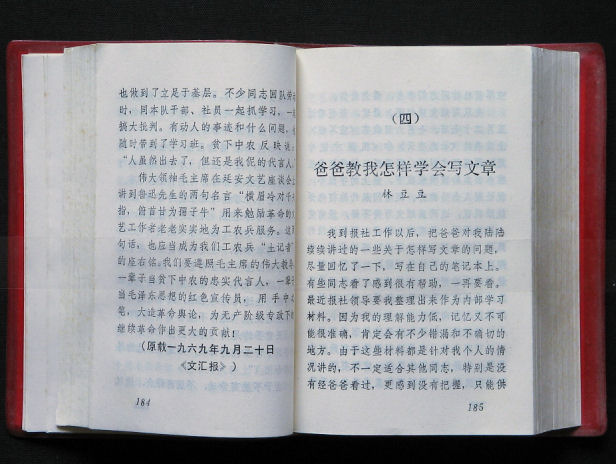 也做到了立足于基层。不少同志回队劳动
时，同本队干部、社员一起抓学习，一起
搞大批判。有动人的事迹和什么问题，也
随时带到了学习班。贫下中农反映说：
“人虽然出去了，但还是我伲的代言人。”
伟大领袖毛主席在延安文艺座谈会上
讲到鲁迅先生的两句名言“横眉冷对千夫
指，俯首甘为孺子牛”用来勉励革命的文
艺工作者老老实实地为工农兵服务。这两
句话，也应当成为我们工农兵“土记者”
的座右铭。我们要遵照毛主席的伟大教导，
一辈子当贫下中农的忠实代言人，一辈子
当毛泽东思想的红色宣传员，用手中的
笔，大造革命舆论，为无产阶级专政下的
继续革命作出更大的贡献！
（原载一九六九年九月二十日
《文汇报》）
184
（四）
爸爸教我怎样学会写文章
林豆豆
我到报社工作以后，把爸爸对我陆陆
续续讲过的一些关于怎样写文章的问题，
尽量回忆了一下，写在自己的笔记本上。
有些同志看了感到很有帮助，一再要看。
最近报社领导要我整理出来作为内部学习
材料。因为我的理解能力低，记忆又不可
能很准确，肯定会有不少错漏和不确切的
地方。由于这些材料都是针对我个人的情
况讲的，不一定适合其他同志，特别是没
有经爸爸看过，更感到没有把握，只能供
185